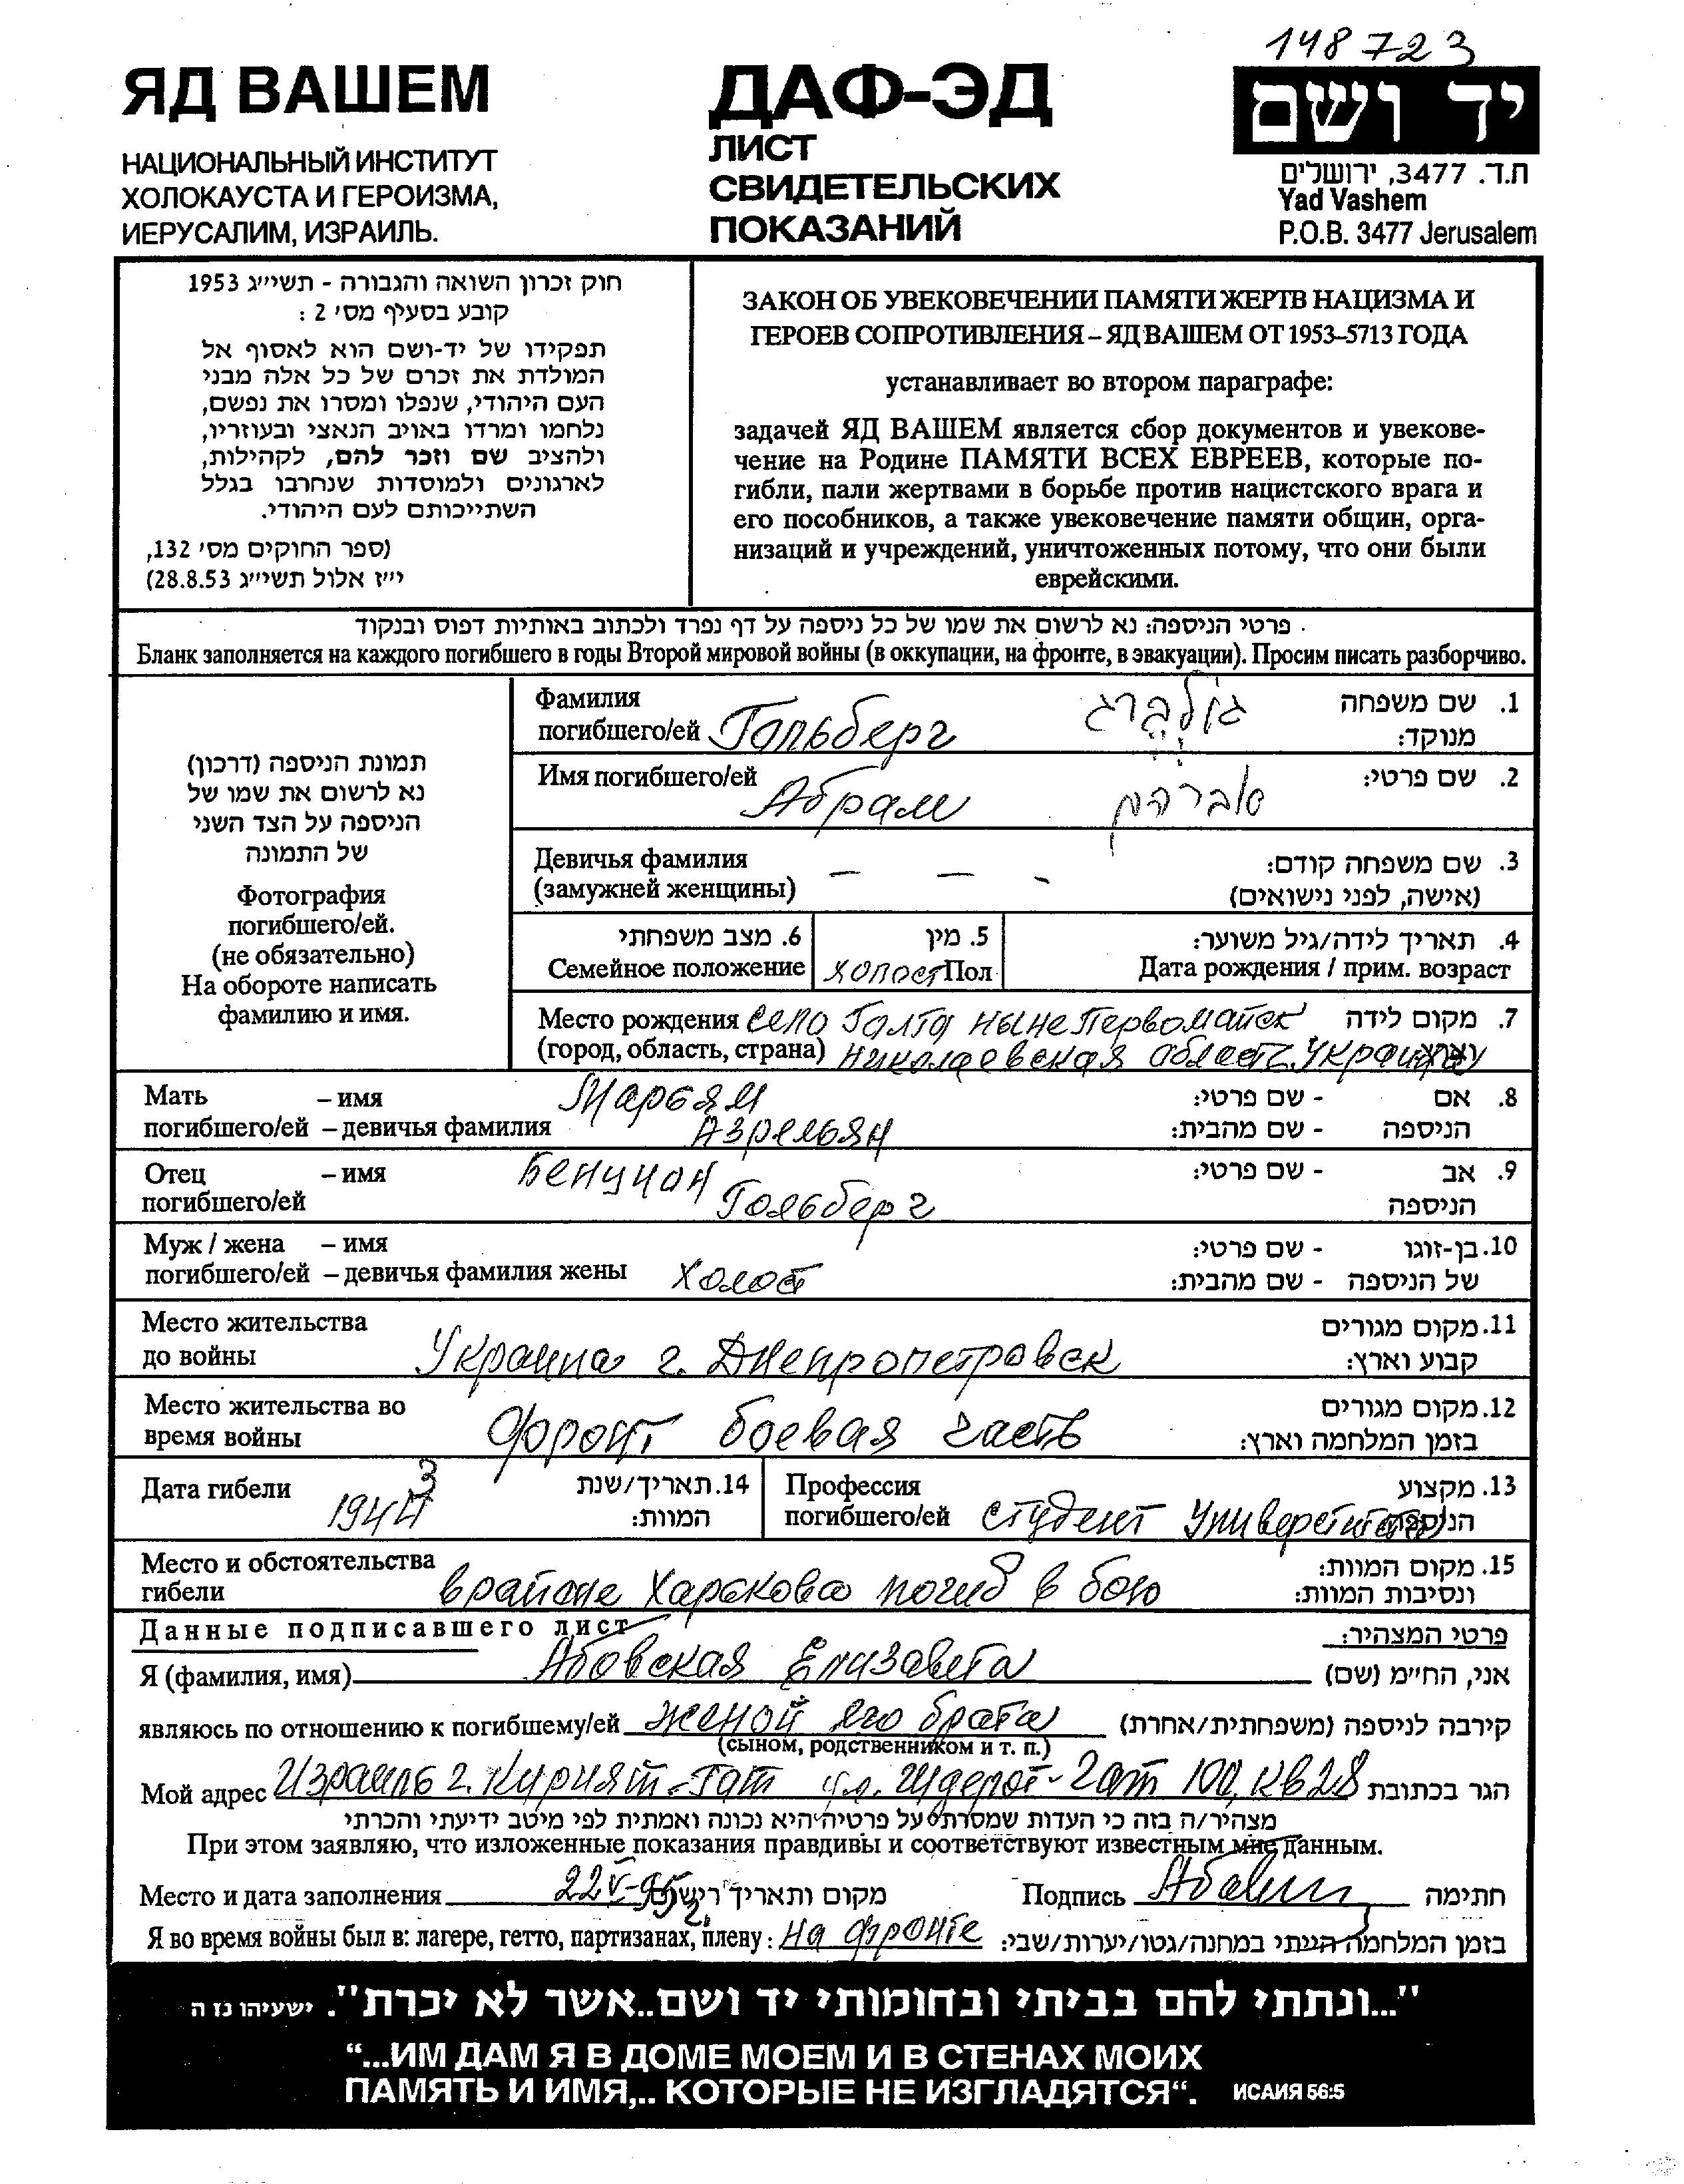 148723
ЯД ВАШЕМ
НАЦИОНАЛЬНЫЙ ИНСТИТУТ
ХОЛОКАУСТА И ГЕРОИЗМА,
ИЕРУСАЛИМ, ИЗРАИЛЬ.
ДАФ-ЭД
ЛИСТ
СВИДЕТЕЛЬСКИХ
ПОКАЗАНИЙ
יד ושם
ת.ד. 3477, ירושלים
Yad Vashem
P.O.B. 3477 Jerusalem
חוק זכרון השואה והגבורה - תשי״ג 1953
קובע בסעיף מס׳ 2 :
תפקידו של יד-ושם הוא לאסוף אל
המולדת את זכרם של כל אלה מבני
העם היהודי, שנפלו ומסרו את נפשם,
נלחמו ומרדו באויב הנאצי ובעוזריו,
ולהציב שם וזכר להם, לקהילות,
לארגונים ולמוסדות שנחרבו בגלל
השתייכותם לעם היהודי.
(ספר החוקים מס׳ 132,
י״ז אלול תשי״ג 28.8.53)
ЗАКОН ОБ УВЕКОВЕЧЕНИИ ПАМЯТИ ЖЕРТВ НАЦИЗМА И
ГЕРОЕВ СОПРОТИВЛЕНИЯ – ЯД ВАШЕМ ОТ 1953–5713 ГОДА
устанавливает во втором параграфе:
задачей ЯД ВАШЕМ является сбор документов и увекове-
чение на Родине ПАМЯТИ ВСЕХ ЕВРЕЕВ, которые по-
гибли, пали жертвами в борьбе против нацистского врага и
его пособников, а также увековечение памяти общин, орга-
низаций и учреждений, уничтоженных потому, что они были
еврейскими.
פרטי הניספה: נא לרשום את שמו של כל ניספה על דף נפרד ולכתוב באותיות דפוס ובנקוד
Бланк заполняется на каждого погибшего в годы Второй мировой войны (в оккупации, на фронте, в эвакуации). Просим писать разборчиво.
תמונת הניספה (דרכון)
נא לרשום את שמו של
הניספה על הצד השני
של התמונה
Фотография
погибшего/ей.
(не обязательно)
На обороте написать
фамилию и имя.
Фамилия
погибшего/ей Гольберг
גולברג
1. שם משפחה
מנוקד:
Имя погибшего/ей Абрам
אברהם
2. שם פרטי:
Девичья фамилия
(замужней женщины) – – -
3. שם משפחה קודם:
(אישה, לפני נישואים)
6. מצב משפחתי
Семейное положение
5. מין
холост Пол
4. תאריך לידה/גיל משוער:
Дата рождения / прим. возраст
Место рождения село Голта ныне Первомайск
(город, область, страна) Николаевская область Украина
7. מקום לידה
וארץ:
Мать – имя Марьям
погибшего/ей – девичья фамилия Азрельян
8. אם - שם פרטי:
הניספה - שם מהבית:
Отец – имя Бенцион
погибшего/ей Гольберг
9. אב - שם פרטי:
הניספה
Муж / жена – имя
погибшего/ей – девичья фамилия жены Холост
10. בן-זוגו - שם פרטי:
של הניספה - שם מהבית:
Место жительства
до войны Украина г. Днепропетровск
11. מקום מגורים
קבוע וארץ:
Место жительства во
время войны Фронт боевая часть
12. מקום מגורים
בזמן המלחמה וארץ:
Дата гибели 1943
14. תאריך/שנת
המוות:
Профессия
погибшего/ей студент Университета
13. מקצוע
הניספה:
Место и обстоятельства
гибели в районе Харькова погиб в бою
15. מקום המוות:
ונסיבות המוות:
Данные подписавшего лист
פרטי המצהיר:
Я (фамилия, имя) Абовская Елизавета אני, החי״מ (שם)
являюсь по отношению к погибшему/ей женой его брата קירבה לניספה (משפחתית/אחרת)
(сыном, родственником и т. п.)
Мой адрес Израиль г. Кирият-Гат ул. Шдерот-Гат 100, кв 28 הגר בכתובת
מצהיר/ה בזה כי העדות שמסרתי על פרטיה היא נכונה ואמתית לפי מיטב ידיעתי והכרתי
При этом заявляю, что изложенные показания правдивы и соответствуют известным мне данным.
Место и дата заполнения 22 V-95г מקום ותאריך רישום Подпись חתימה
Я во время войны был в: лагере, гетто, партизанах, плену: на фронте בזמן המלחמה הייתי במחנה/גטו/יערות/שבי:
"...ונתתי להם בביתי ובחומותי יד ושם..אשר לא יכרת". ישעיהו נז ה
“...ИМ ДАМ Я В ДОМЕ МОЕМ И В СТЕНАХ МОИХ
ПАМЯТЬ И ИМЯ,.. КОТОРЫЕ НЕ ИЗГЛАДЯТСЯ“. ИСАИЯ 56:5